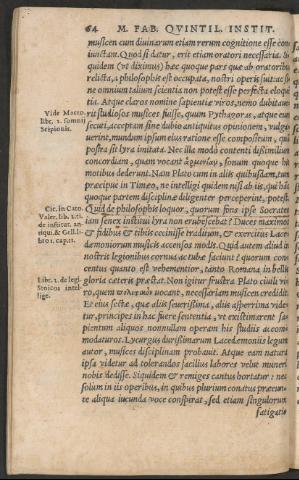 64 M. FAB. QVINTIL. INSTIT.
musicen cum diuinarum etiam rerum cognitione esse con-
iunctam. Quod si datur, erit etiam oratori necessaria. Si
quidem (vt diximus) hæc quoque pars quæ ab oratoribus
relicta, à philosophis est occupata, nostri operis fuit: ac si-
ne omnium talium scientia non potest esse perfecta eloquē
tia. Atque claros nomine sapientiæ viros, nemo dubitaue-
rit studiosos musices fuisse, quum Pythagoras, atque eum
secuti, acceptam sine dubio antiquitus opinionem, vulga-
uerint, mundum ipsum eius ratione esse compositum, quā
postea sit lyra imitata. Nec illa modò contenti dissimilium
concordiam, quam vocant
sonum quoque his
motibus dederunt. Nam Plato cum in aliis quibusdam, tum
præcipue in Timæo, ne intelligi quidem nisi ab iis, qui hanc
quoque partem disciplinæ diligenter perceperint, potest.
Quid de philosophis loquor, quorum fons ipse Socrates
iam senex institui lyra non erubescebat? Duces maximos
& fidibus & tibiis cecinisse traditum, & exercitus Lace-
dæmoniorum musicis accensos modis. Quid autem aliud in
nostris legionibus cornua ac tubæ faciunt? quorum con-
centus quanto est vehementior, tanto Romana in bellis
gloria cæteris præstat. Non igitur frustra Plato ciuili vi-
ro, quem
vocant, necessariam musicen credidit.
Et eius sectæ, quæ aliis seuerissima, aliis asperrima vide-
tur, principes in hac fuere sententia, vt existimarent sa-
pientum aliquos nonnullam operam his studiis accom-
modaturos. Lycurgus durissimarum Lacedæmoniis legum
autor, musices disciplinam probauit. Atque eam natura
ipsa videtur ad tolerandos facilius labores velut muneri
nobis dedisse. Siquidem & remiges cantus hortatur: nec
solum in iis operibus, in quibus plurium conatus præeun-
te aliqua iucunda voce conspirat, sed etiam singulorum
fatigatio
Vide Macro.
libr. 2. somnij
Scipionis.
Cic. in Cato.
Valer. lib.
de institut. an-
tiqui. &
Lib. 2. de legi-